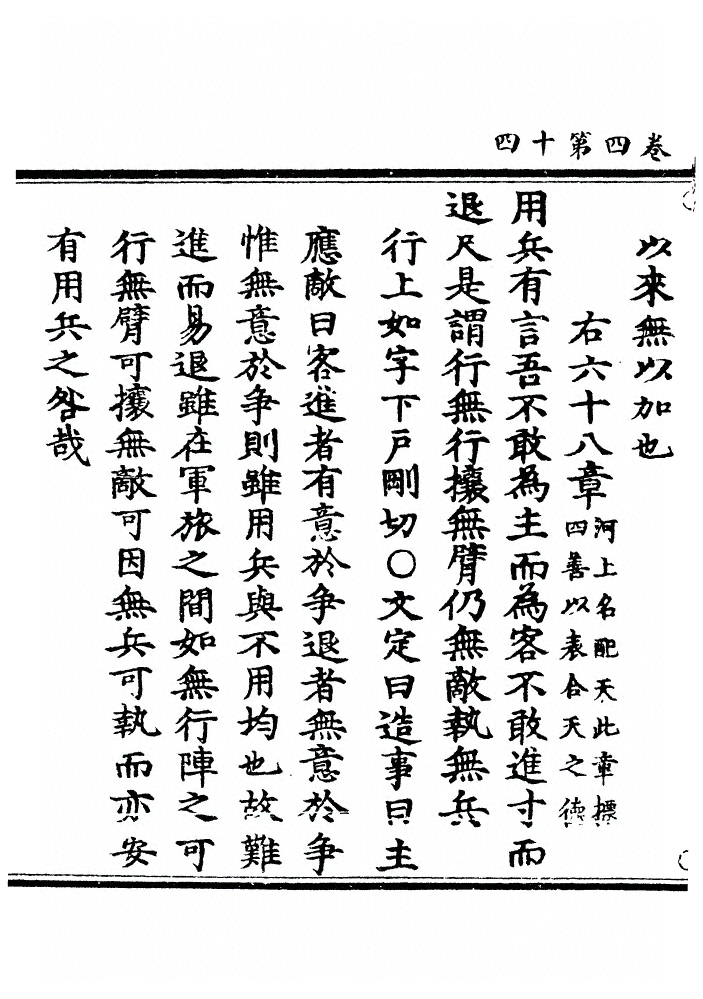 卷四第十四
以來無以加也
右六十八章河上名配天此章標
四善以表合天之德
用兵有言吾不敢為主而為客不敢進寸而
退尺是謂行無行攘無臂仍無敵執無兵
行上如字下戶剛切〇文定曰造事曰主
應敵曰客進者有意於爭退者無意於爭
惟無意於爭則雖用兵與不用均也故難
進而易退雖在軍旅之間如無行陣之可
行無臂可攘無敵可因無兵可執而亦安
有用兵之咎哉